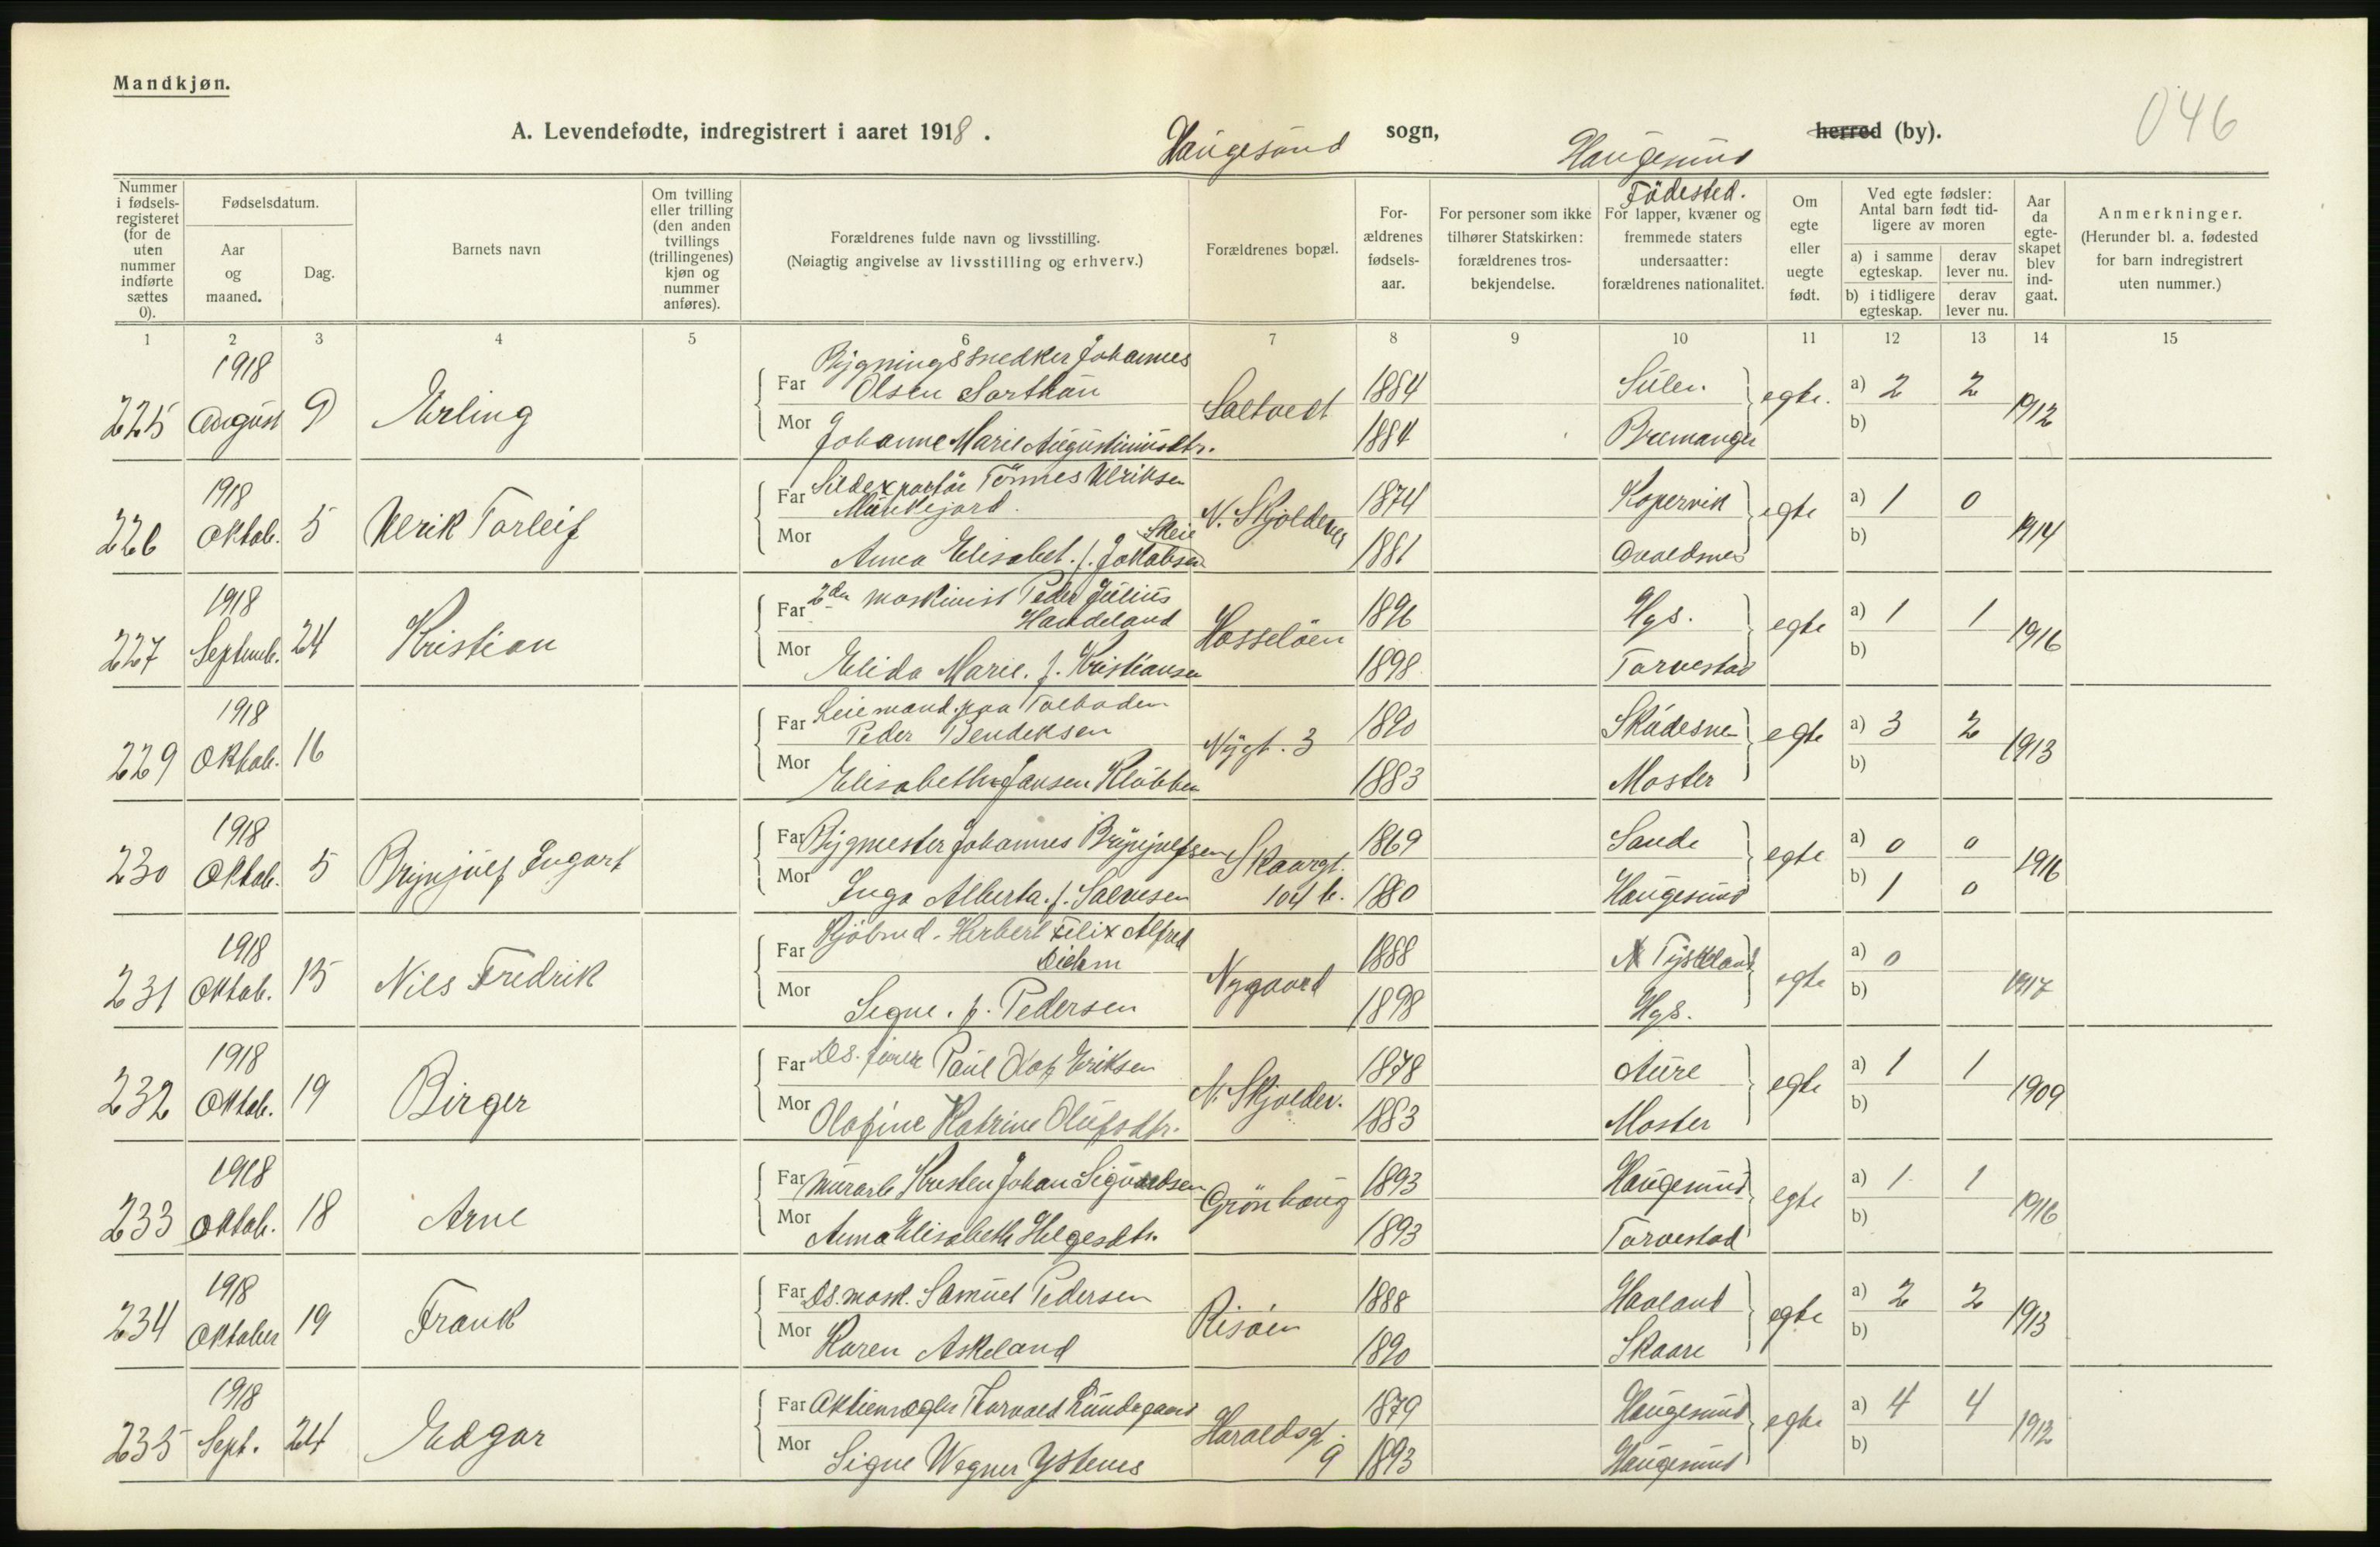 Mandkjøn.
046
A. Levendefødte, indregistrert i aaret 1918. Haugesund sogn, Haugesund herred (by).
Nummer i fødsels-registeret (for de uten nummer indførte sættes 0).
Fødselsdatum.
Aar og maaned.
Dag.
Barnets navn
Om tvilling eller trilling (den anden tvillings (trillingenes) kjøn og nummer anføres).
Forældrenes fulde navn og livsstilling.
(Nøiagtig angivelse av livsstilling og erhverv.)
Forældrenes bopæl.
For-ældrenes fødsels-aar.
For personer som ikke tilhører Statskirken: forældrenes tros-bekjendelse.
Födested.
For lapper, kvæner og fremmede staters undersaatter: forældrenes nationalitet.
Om egte eller uegte født.
Ved egte fødsler: Antal barn født tid-ligere av moren
a) i samme egteskap.
derav lever nu.
b) i tidligere egteskap.
derav lever nu.
Aar da egte-skapet blev ind-gaat.
Anmerkninger.
(Herunder bl. a. fødested for barn indregistrert uten nummer.)
1 2 3 4 5 6 7 8 9 10 11 12 13 14 15
225 1918 August 9 Erling
Far Bygningssnedker Johannes Olsen Sorthan Saltvedt 1884 Sulen egte. a) 2 2 1912
Mor Johanne Marie Augustinusdtr. 1884 Bremanger b)
226 1918 Oktob. 5 Ulrik Torleif
Far Sildexportör Tönnes Ulriksen Munkejord. N. Skjoldevei 1874 Kopervik egte a) 1 0 1914
Mor Anna Elisabet. f. Jakobsen Skeie 1881 Avaldsnes b)
227 1918 Septemb. 24 Kristian
Far 2den maskinist Peder Julius Handeland Hasselöen 1896 Hgs. egte a) 1 1 1916
Mor Elida Marie. f. Kristiansen 1898 Torvestad b)
229 1918 Oktob. 16
Far Leiemand paa Tolboden Peder Bendeksen Nygt. 3 1890 Skudesne egte a) 3 2 1913
Mor Elisabeth Jansen Klubben 1883 Moster b)
230 1918 Oktob. 5 Brynjulf Ingart
Far Bygmester Johannes Brynjulfsen Skaargt. 104 b. 1869 Sande egte a) 0 0 1916
Mor Inga Alberta. f. Salvesen 1880 Haugesund b) 1 0
231 1918 Oktob. 15 Nils Fredrik
Far Kjöbmd. Herbert Felix Alfred Diehm Nygaard 1888 Tyskland egte a) 0 1917
Mor Signe. f. Pedersen 1898 Hgs. b)
232 1918 Oktob. 19 Birger
Far Ds. förer Paul Olaf Eriksen N. Skjoldev. 1878 Aure egte a) 1 1 1909
Mor Olafine Katrine Olufsdtr. 1883 Moster b)
233 1918 Oktob. 18 Arne
Far Murarb Kristen Johan Sigurdsen Grönhaug 1893 Haugesund egte a) 1 1 1916
Mor Anna Elisabeth Helgesdtr. 1893 Torvestad b)
234 1918 Oktober 19 Frank
Far Ds. mask. Samuel Pedersen Risöen 1888 Haaland egte a) 2 2 1913
Mor Karen Askeland 1890 Skaare b)
235 1918 Sept. 24 Edgar
Far Aktiemægler Thorvald Lundegaard Haraldsgt. 9 1879 Haugesund egte a) 4 4 1912
Mor Signe Wegner Ystenes 1893 Haugesund b)